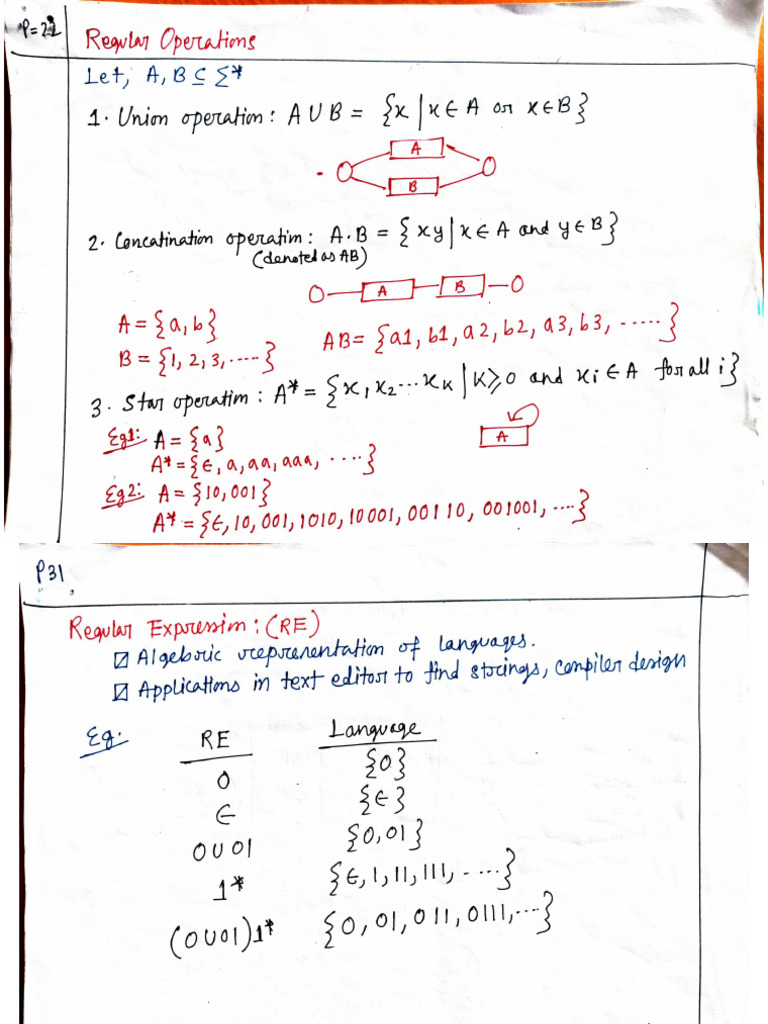 P=22
Regular Operations
Let, A, B ⊆ Σ*
1. Union operation: A ∪ B = {x | x ∈ A or x ∈ B}
A
B
2. Concatination operation: A.B = {xy | x ∈ A and y ∈ B}
(denoted as AB)
A B
A = {a, b}
AB = {a1, b1, a2, b2, a3, b3, .....}
B = {1, 2, 3, .....}
3. Star operation: A* = {x₁x₂...xₖ | K ≥ 0 and xᵢ ∈ A for all i}
Eg1: A = {a}
A
A* = {ϵ, a, aa, aaa, ....}
Eg2: A = {10, 001}
A* = {ϵ, 10, 001, 1010, 10001, 00110, 001001, ....}
P31
Regular Expression: (RE)
☑ Algebric representation of languages.
☑ Applications in text editor to find strings, compiler design
Eg. RE Language
0 {0}
ϵ {ϵ}
0∪01 {0, 01}
1* {ϵ, 1, 11, 111, .....}
(0∪01)1* {0, 01, 011, 0111, ...}